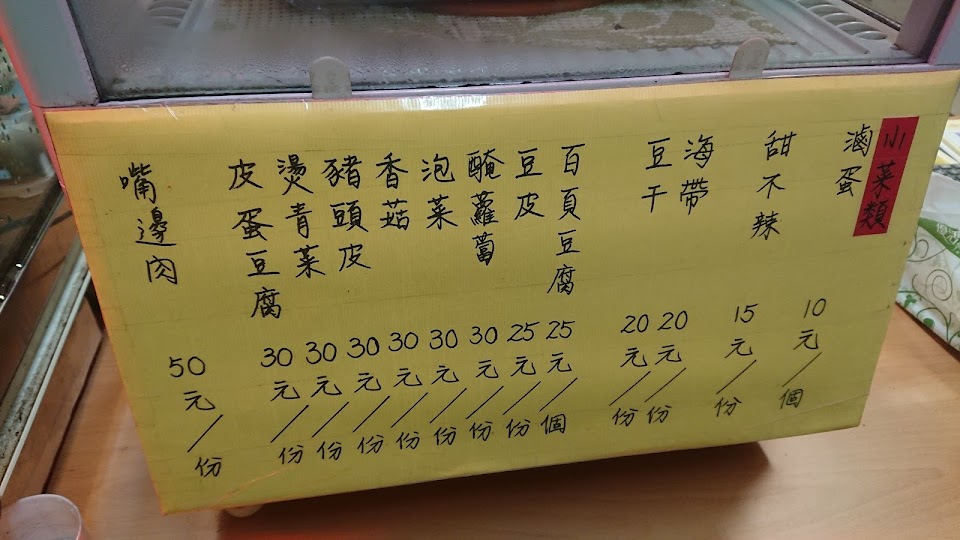 小菜類
滷蛋 10元/個
甜不辣 15元/份
海帶 20元/份
豆干 20元/份
百頁豆腐 25元/個
豆皮 25元/份
醃蘿蔔 30元/份
泡菜 30元/份
香菇 30元/份
豬頭皮 30元/份
燙青菜 30元/份
皮蛋豆腐 30元/份
嘴邊肉 50元/份